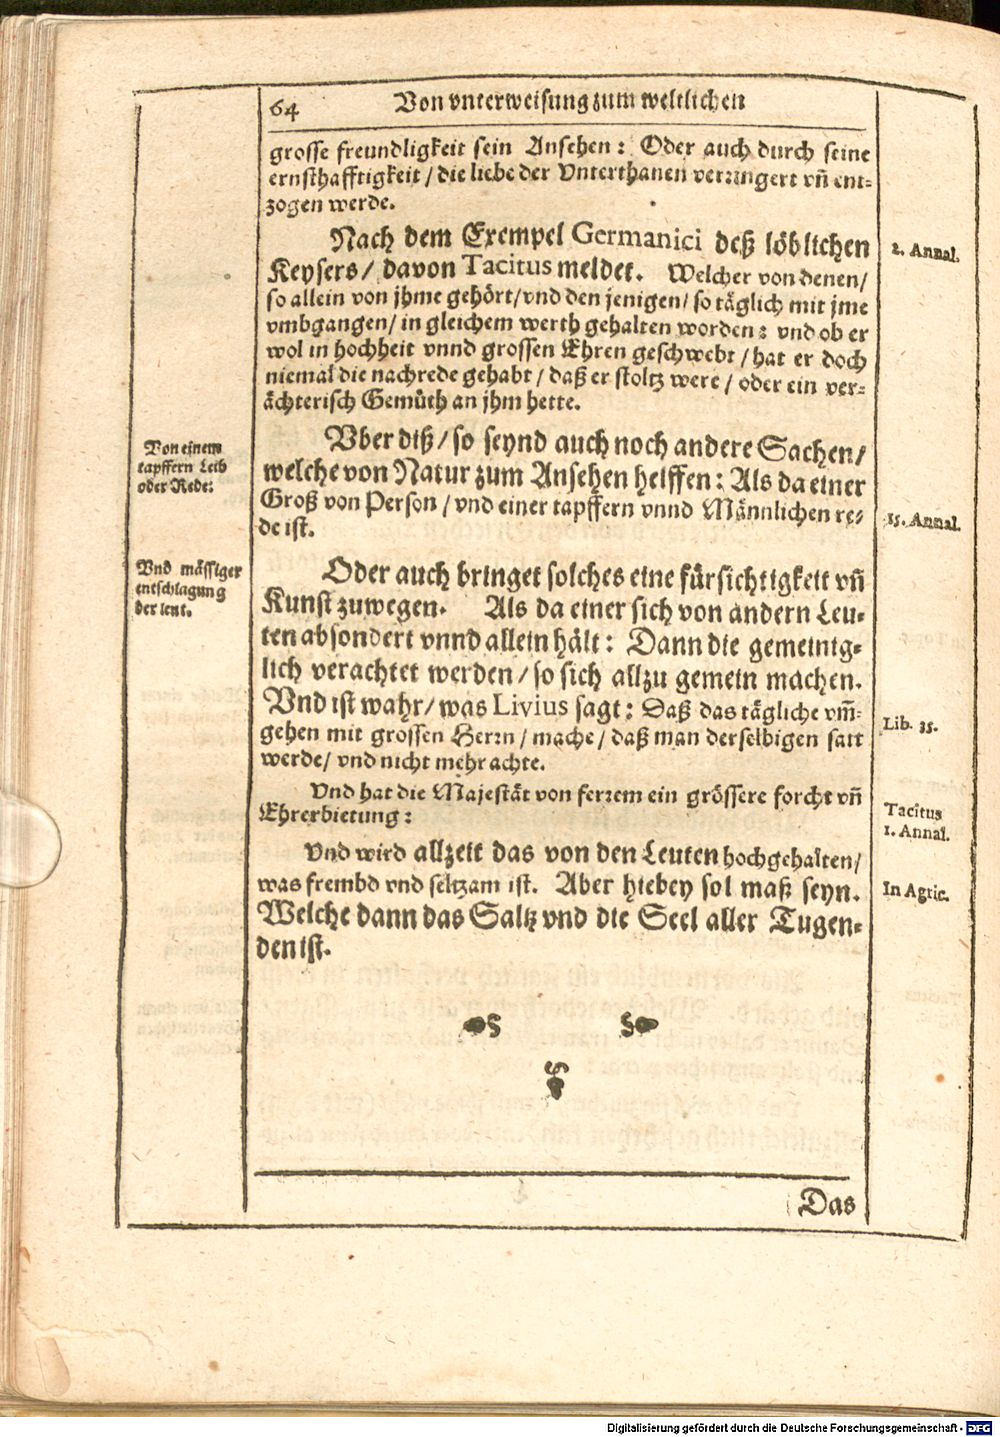 64
Von vnterweisung zum weltlichen
grosse freundligkeit sein Ansehen: Oder auch durch seine
ernsthafftigkeit / die liebe der Vnterthanen verringert vñ ent-
zogen werde.
Nach dem Exempel Germanici deß löblichen
Keysers / davon Tacitus meldet. Welcher von denen /
so allein von jhme gehört / vnd den jenigen / so täglich mit jme
vmbgangen / in gleichem werth gehalten worden: vnd ob er
wol in hochheit vnnd grossen Ehren geschwebt / hat er doch
niemal die nachrede gehabt / daß er stoltz were / oder ein ver-
ächterisch Gemüth an jhm hette.
2. Annal.
Vber diß / so seynd auch noch andere Sachen /
welche von Natur zum Ansehen helffen: Als da einer
Groß von Person / vnd einer tapffern vnnd Männlichen re-
de ist.
Von einem
tapffern Leib
oder Rede:
15. Annal.
Oder auch bringet solches eine fürsichtigkeit vñ
Kunst zuwegen. Als da einer sich von andern Leu-
ten absondert vnnd allein hält: Dann die gemeinig-
lich verachtet werden / so sich allzu gemein machen.
Vnd ist wahr / was Livius sagt: Daß das tägliche vm̃-
gehen mit grossen Herrn / mache / daß man derselbigen satt
werde / vnd nicht mehr achte.
Vnd mässiger
entschlagung
der leut.
Lib. 35.
Vnd hat die Majestät von ferrem ein grössere forcht vñ
Ehrerbietung:
Tacitus
1. Annal.
Vnd wird allzeit das von den Leuten hochgehalten /
was frembd vnd seltzam ist. Aber hiebey sol maß seyn.
Welche dann das Saltz vnd die Seel aller Tugen-
den ist.
In Agric.
Das
Digitalisierung gefördert durch die Deutsche Forschungsgemeinschaft - DFG